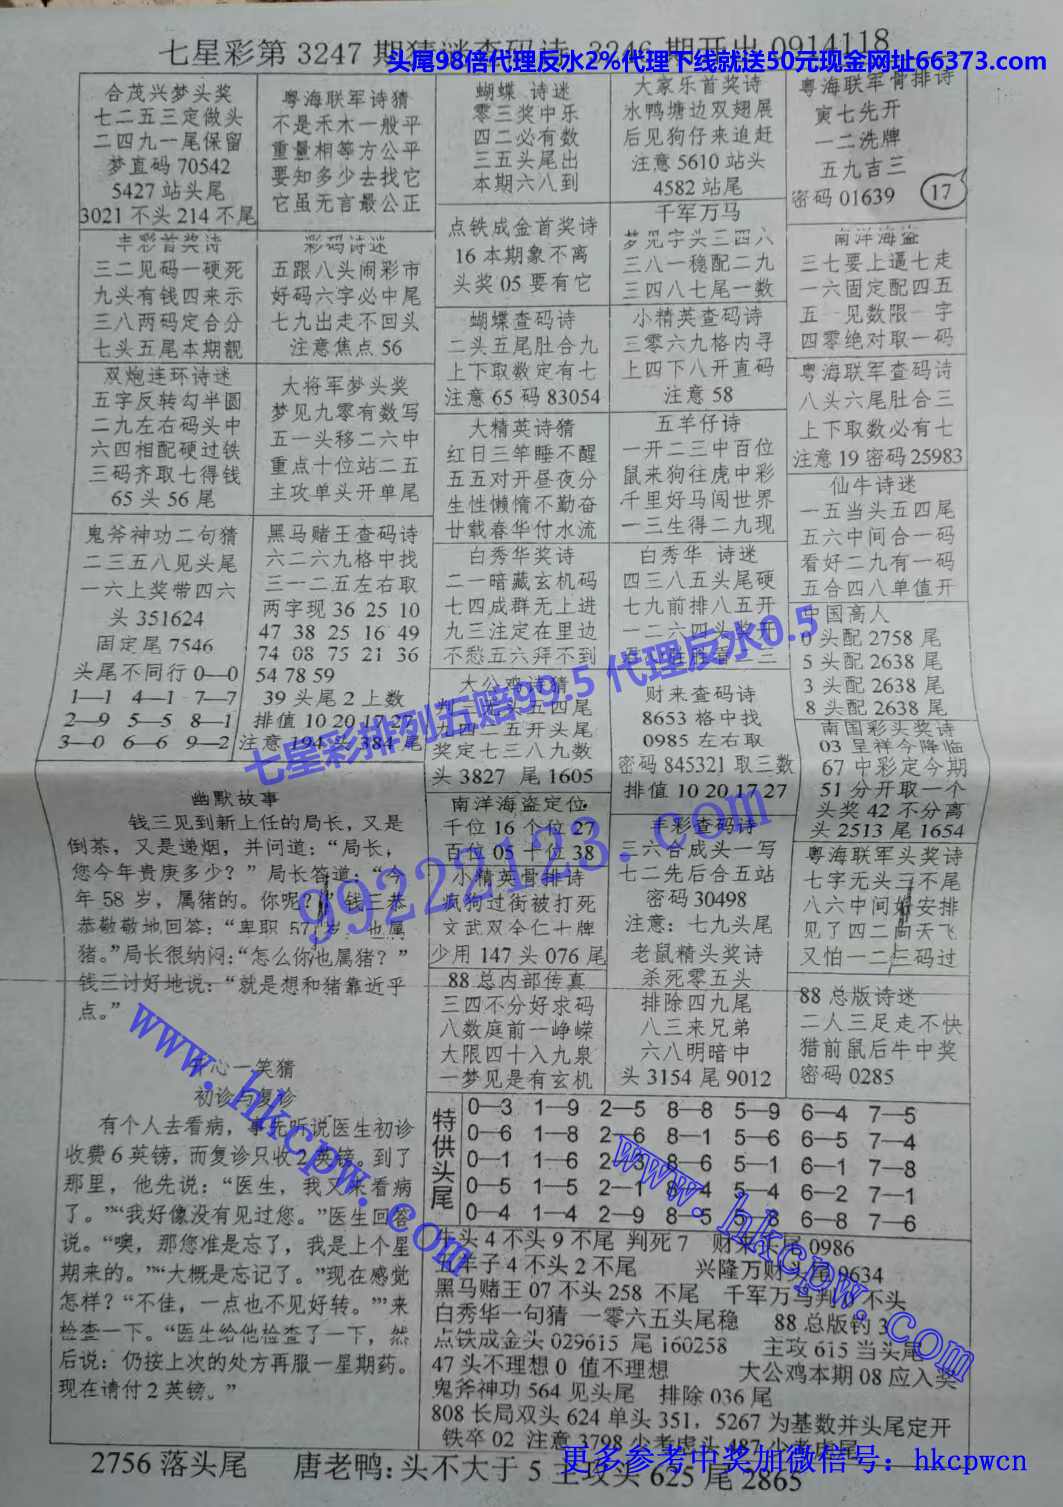 七星彩第3247期猜谜查码诗 3246期开出0914118
头尾98倍代理反水2%代理下线就送50元现金网址66373.com
合茂兴梦头奖
七二五三定做头
二四九一尾保留
梦直码70542
5427站头尾
3021不头214不尾
粤海联军诗猜
不是禾木一般平
重量相等方公平
要知多少去找它
它虽无言最公正
蝴蝶 诗迷
零三奖中乐
四二必有数
三五头尾出
本期六八到
大家乐首奖诗
水鸭塘边双翅展
后见狗仔来追赶
注意5610站头
4582站尾
粤海联军骨排诗
寅七先开
一二洗牌
五九吉三
密码01639
17
丰彩首奖诗
三二见码一硬死
九头有钱四来示
三八两码定合分
七头五尾本期靓
彩码诗迷
五跟八头闹彩市
好码六字必中尾
七九出走不回头
注意焦点56
点铁成金首奖诗
16本期象不离
头奖05要有它
千军万马
梦见字头三四六
三八一稳配二九
三四八七尾一数
南洋海盗
三七要上逼七走
一六固定配四五
五一见数限一字
四零绝对取一码
蝴蝶查码诗
二头五尾肚合九
上下取数定有七
注意65码83054
小精英查码诗
三零六九格内寻
上四下八开直码
注意58
粤海联军查码诗
八头六尾肚合三
上下取数必有七
注意19密码25983
双炮连环诗迷
五字反转勾半圆
二九左右码头中
六四相配硬过铁
三码齐取七得钱
65头56尾
大将军梦头奖
梦见九零有数写
五一头移二六中
重点十位站二五
主攻单头开单尾
大精英诗猜
红日三竿睡不醒
五五对开昼夜分
生性懒惰不勤奋
廿载春华付水流
五羊仔诗
一开二三中百位
鼠来狗往虎中彩
千里好马闯世界
一三生得二九现
仙牛诗迷
一五当头五四尾
五六中间合一码
看好二九有一码
五合四八单值开
鬼斧神功二句猜
二三五八见头尾
一六上奖带四六
头351624
固定尾7546
头尾不同行0—0
1—1 4—1 7—7
2—9 5—5 8—1
3—0 6—6 9—2
黑马赌王查码诗
六二六九格中找
三一二五左右取
两字现36 25 10
47 38 25 16 49
74 08 75 21 36
54 78 59
39头尾2上数
排值10 20 19 27
注意194头384尾
白秀华奖诗
二一暗藏玄机码
七四成群无上进
九三注定在里边
不愁五六拜不到
白秀华 诗迷
四三八五头尾硬
七九前排八五开
一二六四头奖开
中国高人
0头配2758尾
5头配2638尾
3头配2638尾
8头配2638尾
大公鸡诗猜
九四二五开头尾
奖定七三八九数
头3827 尾1605
财来查码诗
8653格中找
0985左右取
密码845321取三数
排值10 20 17 27
南国彩头奖诗
03呈祥今降临
67中彩定今期
51分开取一个
头奖42不分离
头2513尾1654
七星彩排列五赔99.5 代理反水0.5
幽默故事
钱三见到新上任的局长，又是
倒茶，又是递烟，并问道：“局长，
您今年贵庚多少？”局长答道：“今
年58岁，属猪的。你呢？”钱三恭
恭敬敬地回答：“卑职57岁，也属
猪。”局长很纳闷：“怎么你也属猪？”
钱三讨好地说：“就是想和猪靠近乎
点。”
南洋海盗定位
千位16个位27
百位05十位38
小精英骨排诗
疯狗过街被打死
文武双全仁十牌
少用147头076尾
丰彩查码诗
三六合成头一写
七二先后合五站
密码30498
注意：七九头尾
粤海联军头奖诗
七字无头二不尾
八六中间如安排
见了四二向天飞
又怕一二三码过
99222123.com
88总内部传真
三四不分好求码
八数庭前一峥嵘
大限四十入九泉
一梦见是有玄机
老鼠精头奖诗
杀死零五头
排除四九尾
八三来兄弟
六八明暗中
头3154尾9012
88总版诗迷
二人三足走不快
猎前鼠后牛中奖
密码0285
开心一笑猜
初诊与复诊
有个人去看病，事先听说医生初诊
收费6英镑，而复诊只收2英镑。到了
那里，他先说：“医生，我又来看病
了。”“我好像没有见过您。”医生回答
说。“噢，那您准是忘了，我是上个星
期来的。”“大概是忘记了。”现在感觉
怎样？”“不佳，一点也不见好转。”’来
检查一下。“医生给他检查了一下，然
后说：仍按上次的处方再服一星期药。
现在请付2英镑。”
特供头尾
0—3 1—9 2—5 8—8 5—9 6—4 7—5
0—6 1—8 2—6 8—1 5—6 6—5 7—4
0—1 1—6 2—3 8—6 5—1 6—1 7—8
0—5 1—5 2—1 8—4 5—4 6—2 7—1
0—4 1—4 2—9 8—5 5—8 6—8 7—6
牛头4不头9不尾 判死7 财来头尾0986
五羊子4不头2不尾 兴隆万财头尾9634
黑马赌王07不头258不尾 千军万马判0不头
白秀华一句猜 一零六五头尾稳 88总版钓3
点铁成金头029615 尾160258 主攻615当头尾
47头不理想0 值不理想 大公鸡本期08应入奖
鬼斧神功564见头尾 排除036尾
808长局双头624单头351，5267为基数并头尾定开
铁卒02 注意3798少考虑头487少考虑尾
www.hkcpw.com
www.hkcpw.com
2756落头尾 唐老鸭：头不大于5 主攻头625尾2865
更多参考中奖加微信号：hkcpwcn